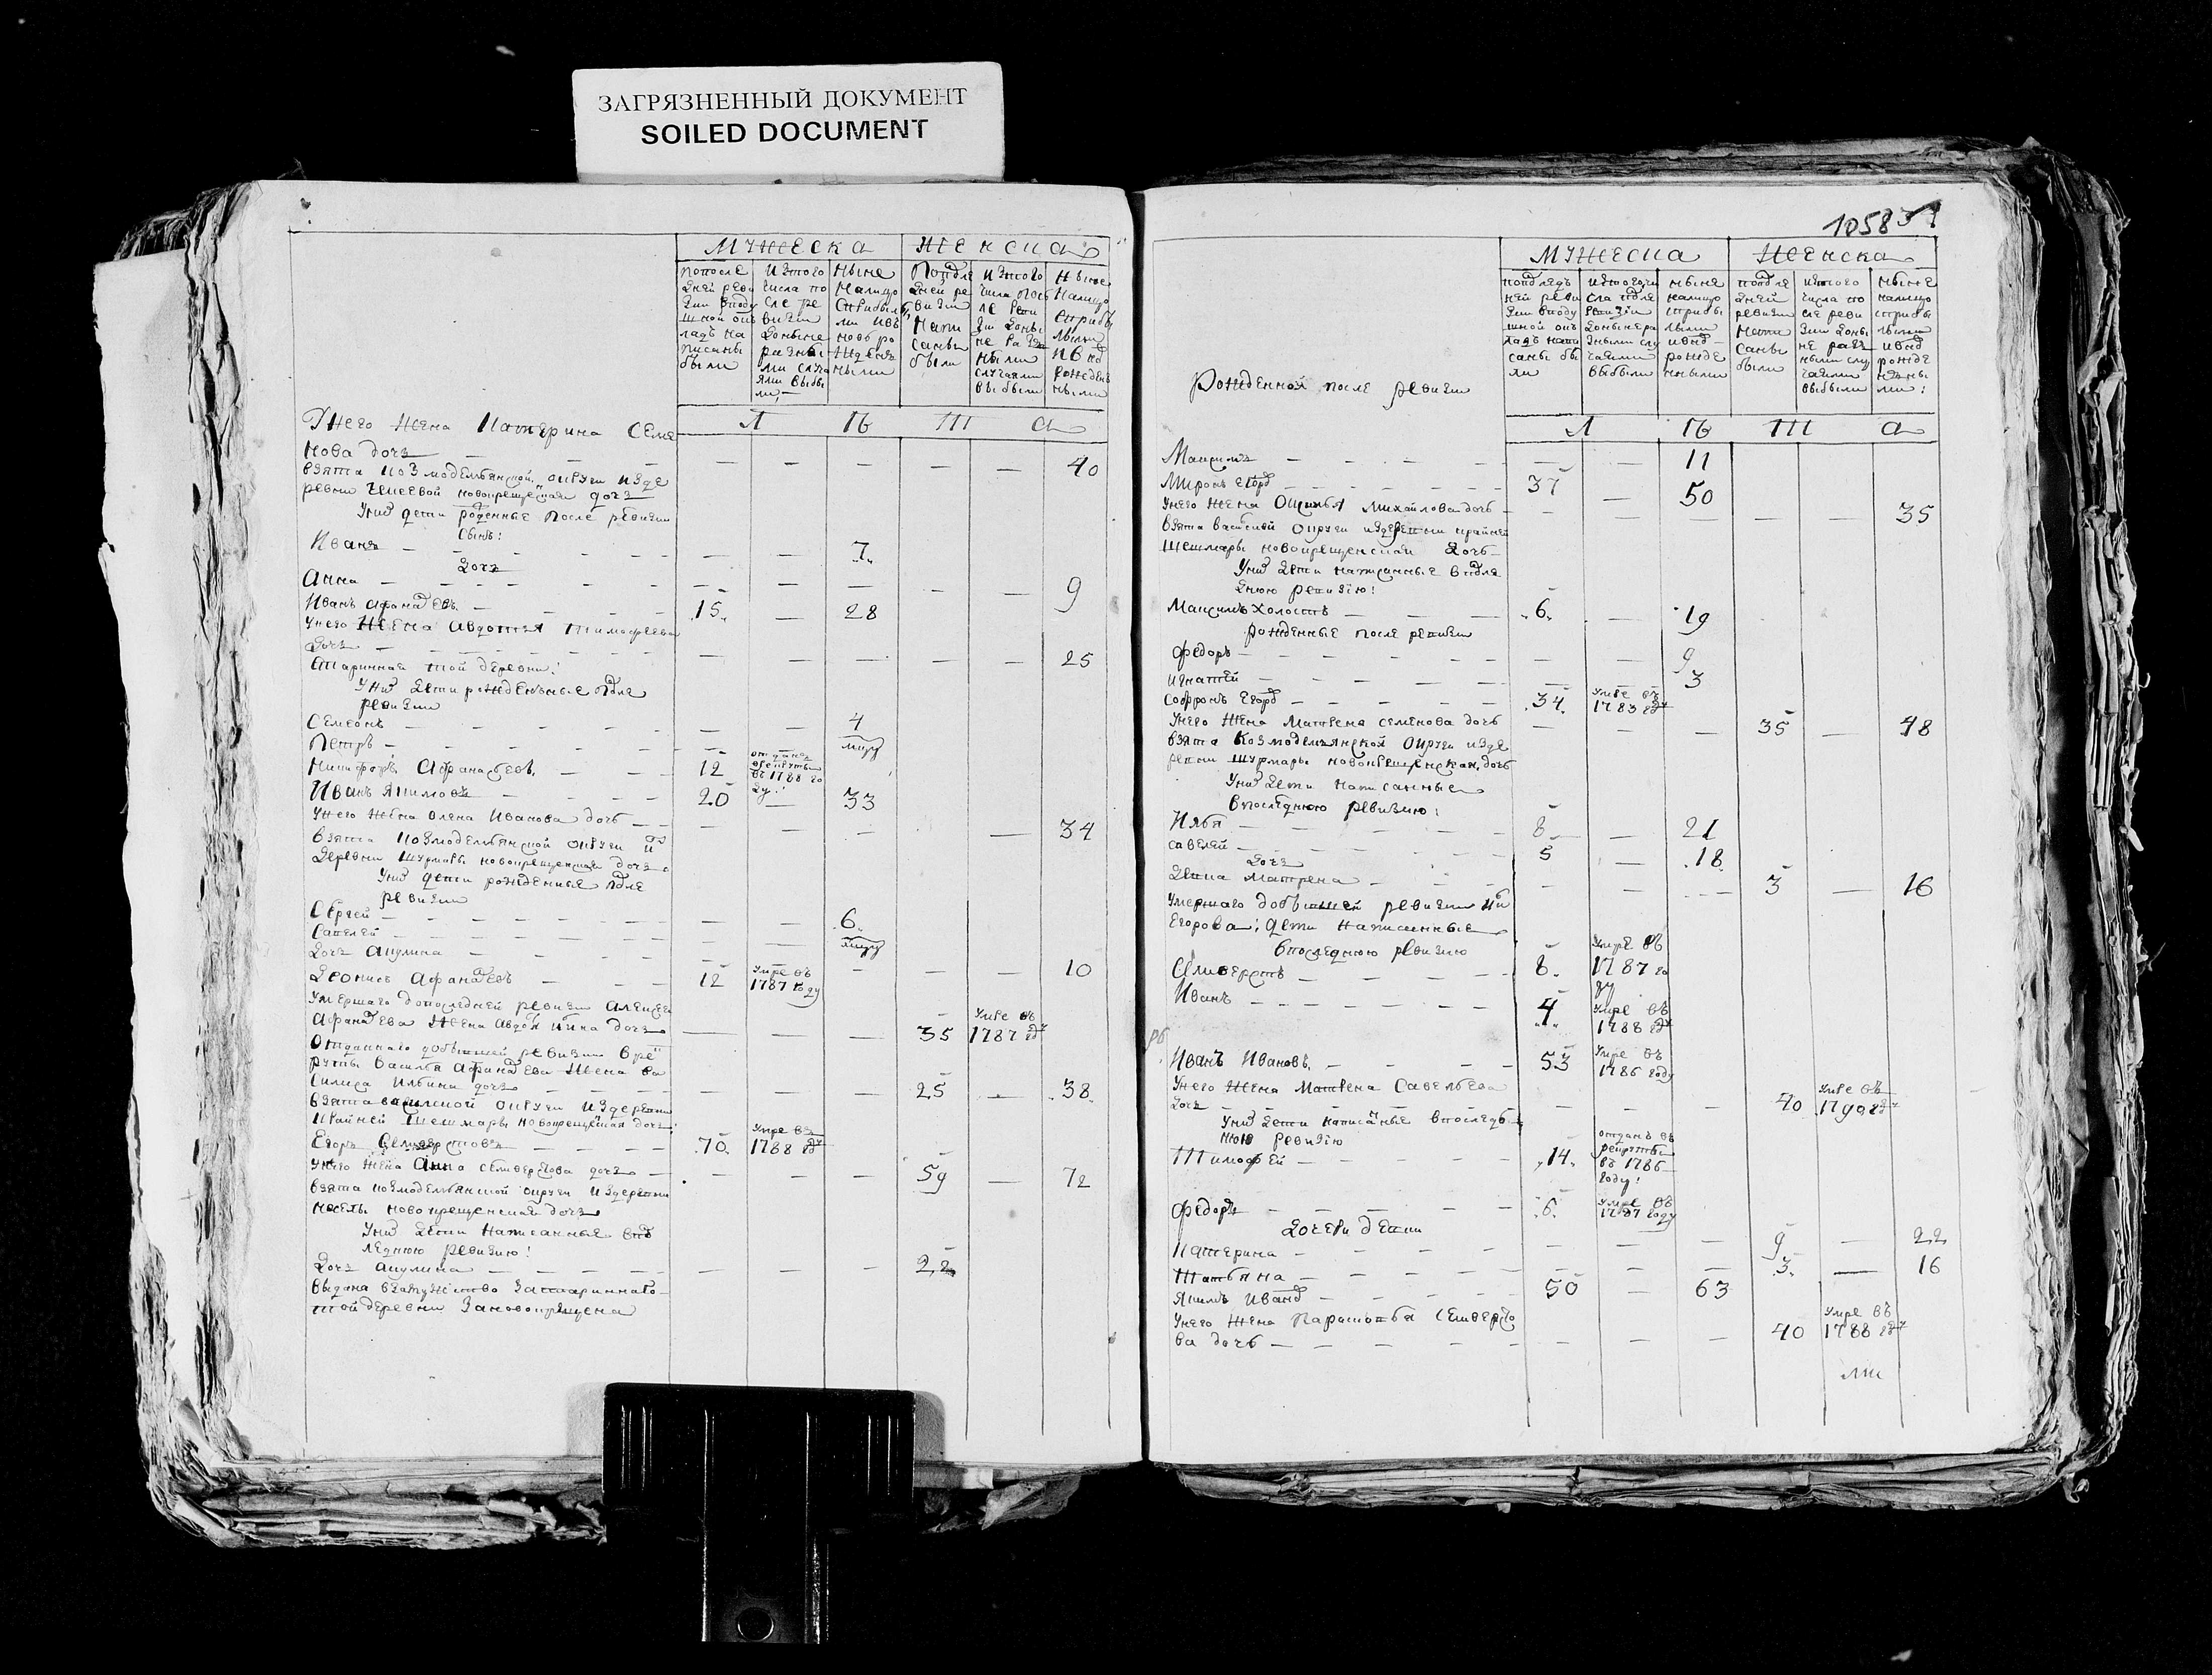 ЗАГРЯЗНЕННЫЙ ДОКУМЕНТ
SOILED DOCUMENT
МУЖЕСКА ЖЕНСКА
После
дней реви
зии вподу
шной окъ
ладъ на
писаны
были
изтого
числа по
сле ре
визии
доныне
разны
ми случа
ями выбы
ли
Ныне
Налицо
сприбыл
ми ивъ
новъ ро
жденъ
ными
Попосле
дней ре
визии
Напи
саны
были
изтого
числа посъ
ле реви
зии доны
не разъ
ными
случаями
выбыли
Ныне
Налицо
сприбы
лыми
ивно
рожденъ
ными
Л Ѣ Т а
Унего Жена Катерина Семе
нова дочь 40
взята козмодемьянской округи изде
ревни новокрещеская дочь
Униз дети роденные после ревизии
Сынъ:
Иванъ 7
Дочь
Анна 9
Иванъ Афанасьевъ 15 28
Унего Жена Авдотья Тимофеева
дочь 25
Старинная той деревни:
Униз дети рожденъные после
ревизии
Семеонъ 4
Петръ
Никифоръ Афанасьевъ 12 отданъ
врекруты
въ 1788 го
ду:
Иванъ Якимовъ 20 33
Унего Жена Олена Иванова дочь 34
взята козмодемьянской округи из
деревни Шурмары новокрещенская дочь
Униз дети рожденные после
ревизии
Сергей 6
Савелей
Дочь Акулина 10
Деонись Афанасьевъ 12 Умре въ
1787 году
Умершаго допоследней ревизии Алексея
Афанасьева Жена Авдотья дочь 35 Умре въ
1787 году
Отданного добывшей ревизии вре
круты Василья Афанасьева Жена Ва
силиса Ильина дочь 25 38
взята васильской округи издеревни
крайней Шешмары новокрещеская дочь:
Егоръ Селиверстовъ 70 Умре въ
1788 году
Унего Жена Анна селиверстова дочь 59 72
взята козмодемьянской округи издеревни
новокрещенская дочь
Униз дети Написанные впос
леднюю ревизию:
Дочь Акулина 22
выдана взамужство застариннаго
той деревни зановокрещена
1058
МУЖЕСКА Женска
Рожденной после ревизии
попоследъ
ней реви
зии вподу
шной окъ
ладъ напи
саны бы
ли
изтогочи
сла после
ревизии
доныне ра
зными слу
чаями
выбыли
ныне
налицо
сприбы
лыми
ивно
рожде
нными
попосле
дней
ревизии
напи
саны
были
изтого
числа по
сле реви
зии доны
не раз
ными слу
чаями
выбыли
ныне
налицо
сприбы
лыми
ивно
рожде
нны
ми:
Л Ѣ Т а
Максимъ 11
Миронъ Егоровъ 37 50
Унего Жена Михайлова дочь 35
взята васской округи издеревни крайней
Шешмары новокрещенская дочь
Униз дети написанные впосле
днюю ревизию:
Максимъ холостъ 6 19
рожденные после ревизии
федоръ 9
игнатей 3
Софронъ Егоровъ 34 Умре въ
1783 году
Унего Жена Матрена семенова дочь 35 48
взята Козмодемьянской округи изде
ревни Шурмары новокрещенская дочь
Униз дети написанные
впоследнюю ревизию:
Илья 8 21
савелей 5 18
Дочь
Девка Матрена 3 16
Умершаго добывшей ревизии
Егорова: дети написанные
впоследнюю ревизию
Селиверстъ 8 Умре въ
1787 го
ду
Иванъ 4 Умре въ
1788 году
Иванъ Ивановъ 53 Умре въ
1786 году
Унего Жена Матвена Савельева
дочь 40 Умре въ
1790 году
Униз дети написаные впоследъ
нюю ревизию
Тимофей 14 отданъ въ
рекруты
въ 1786
году:
федоръ 6 Умре въ
1787 году
Дочери девки
Катерина 9 22
Татьяна 3 16
Якимъ Ивановъ 50 63
Унего Жена Парасковья Селиверсто
ва дочь 40 Умре въ
1788 году